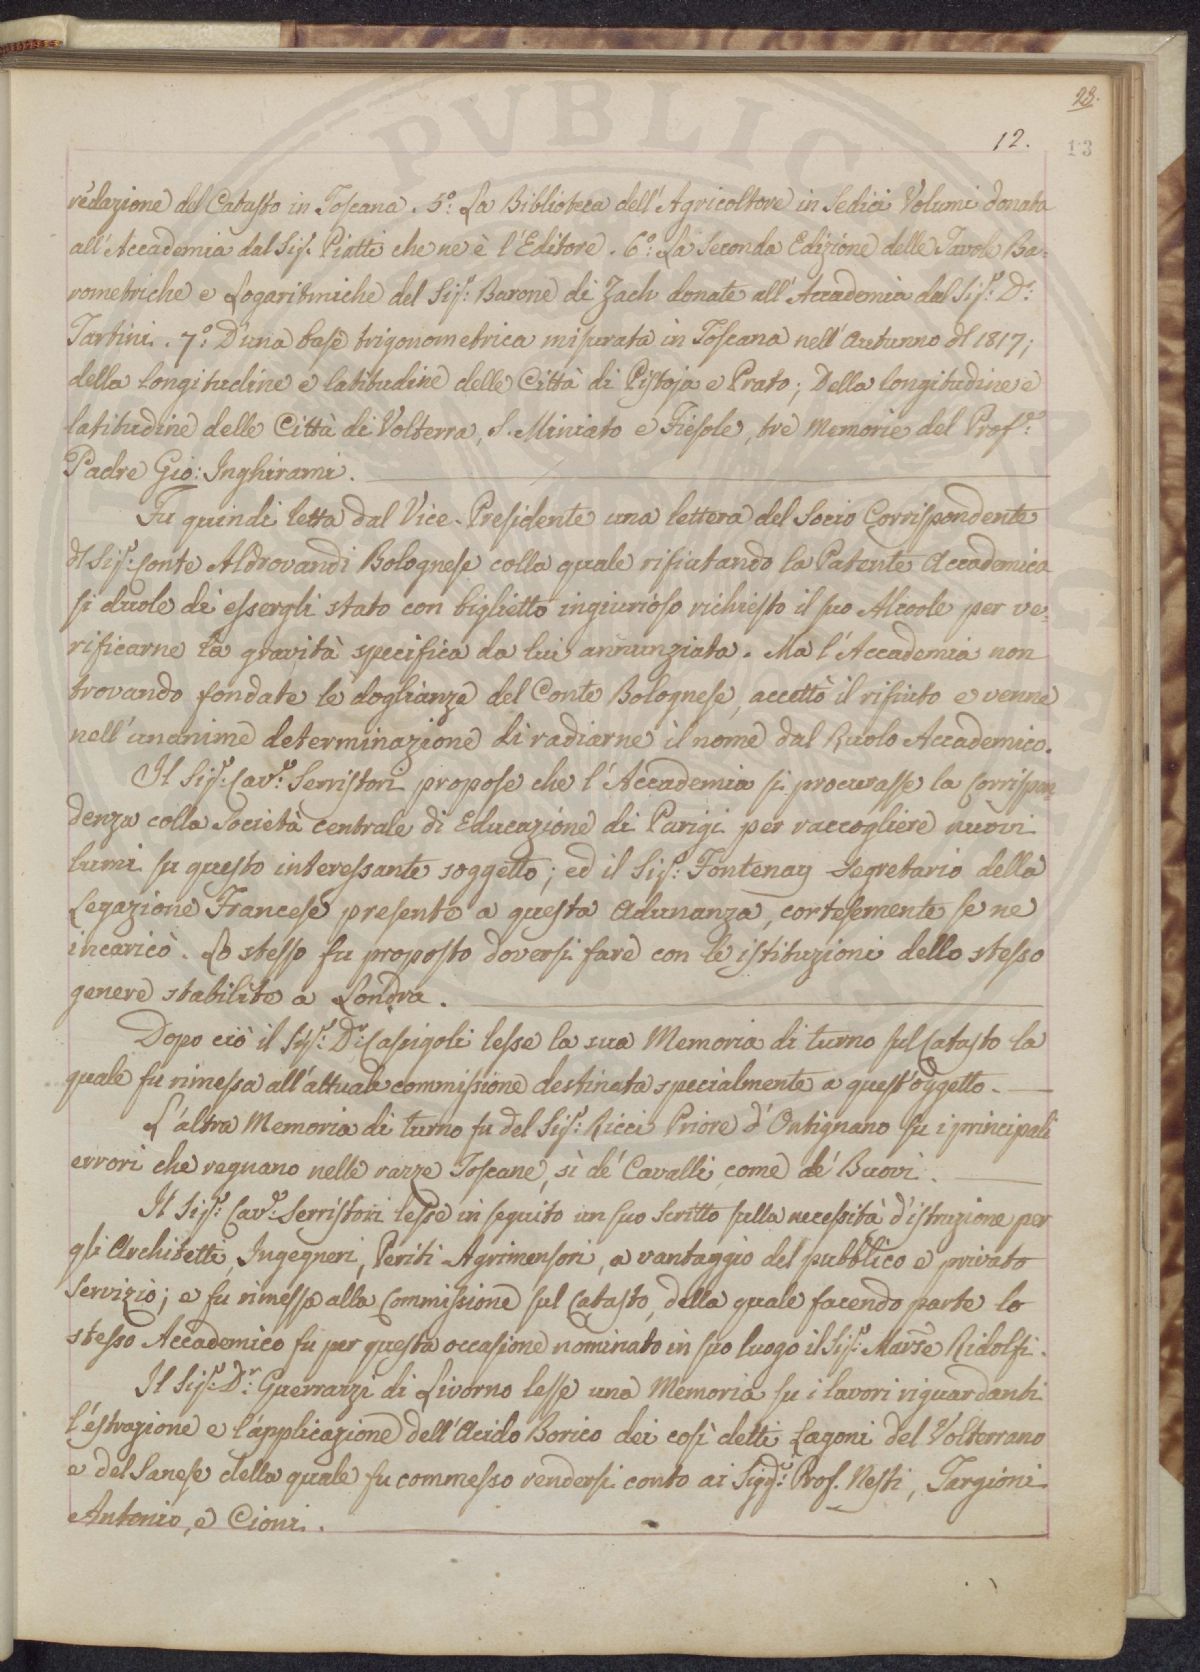 23.
12.
13
redazione del Catasto in Toscana. 5.° La Biblioteca dell'Agricoltore in Sedici Volumi donata
all'Accademia dal Sig.r Piatti che ne è l'Editore. 6.° La Seconda Edizione delle Tavole Ba-
rometriche e Logaritmiche del Sig.r Barone di Zach donate all'Accademia dal Sig.r D.r
Tartini. 7.° D'una base trigonometrica misurata in Toscana nell'Autunno del 1817;
della longitudine e latitudine delle Città di Pistoja e Prato; Della longitudine e
latitudine delle Città di Volterra, S. Miniato e Fiesole, tre Memorie del Prof.e
Padre Gio: Inghirami.
Fu quindi letta dal Vice-Presidente una lettera del Socio Corrispondente
il Sig.r Conte Aldrovandi Bolognese colla quale rifiutando la Patente Accademica
si duole di essergli stato con biglietto ingiurioso richiesto il suo Alcoole per ve-
rificarne la gravità specifica da lui annunziata. Ma l'Accademia non
trovando fondate le doglianze del Conte Bolognese, accettò il rifiuto e venne
nell'unanime determinazione di radiarne il nome dal Ruolo Accademico.
Il Sig.r Cav.e Serristori propose che l'Accademia si procurasse la corrispon-
denza colla Società centrale di Educazione di Parigi per raccogliere nuovi
lumi su questo interessante soggetto; ed il Sig.r Fontenay Segretario della
Legazione Francese presente a questa Adunanza, cortesemente se ne
incaricò. Lo stesso fu proposto doversi fare con le istituzioni dello stesso
genere stabilite a Londra.
Dopo ciò il Sig.r D.r Capigoli lesse la sua Memoria di turno sul Catasto la
quale fu rimessa all'attuale commissione destinata specialmente a quest'oggetto.
L'altra Memoria di turno fu del Sig.r Ricci Priore d'Ontignano su i principali
errori che regnano nelle razze Toscane, sì de' Cavalli come de' Buovi.
Il Sig.r Cav.e Serristori lesse in seguito un suo Scritto sulla necessità d'istruzione per
gli Architetti, Ingegneri, Periti Agrimensori, a vantaggio del pubblico e privato
Servizio; e fu rimesso alla Commissione sul Catasto, della quale facendo parte lo
stesso Accademico fu per questa occasione nominato in suo luogo il Sig.r Marse Ridolfi.
Il Sig.r D.r Guerrazzi di Livorno lesse una Memoria su i lavori riguardanti
l'estrazione e l'applicazione dell'Acido Borico dei così detti Lagoni del Volterrano
e del Sanese della quale fu commesso rendersi conto ai Sigg.ri Prof. Nesti, Targioni
Antonio, e Cioni.